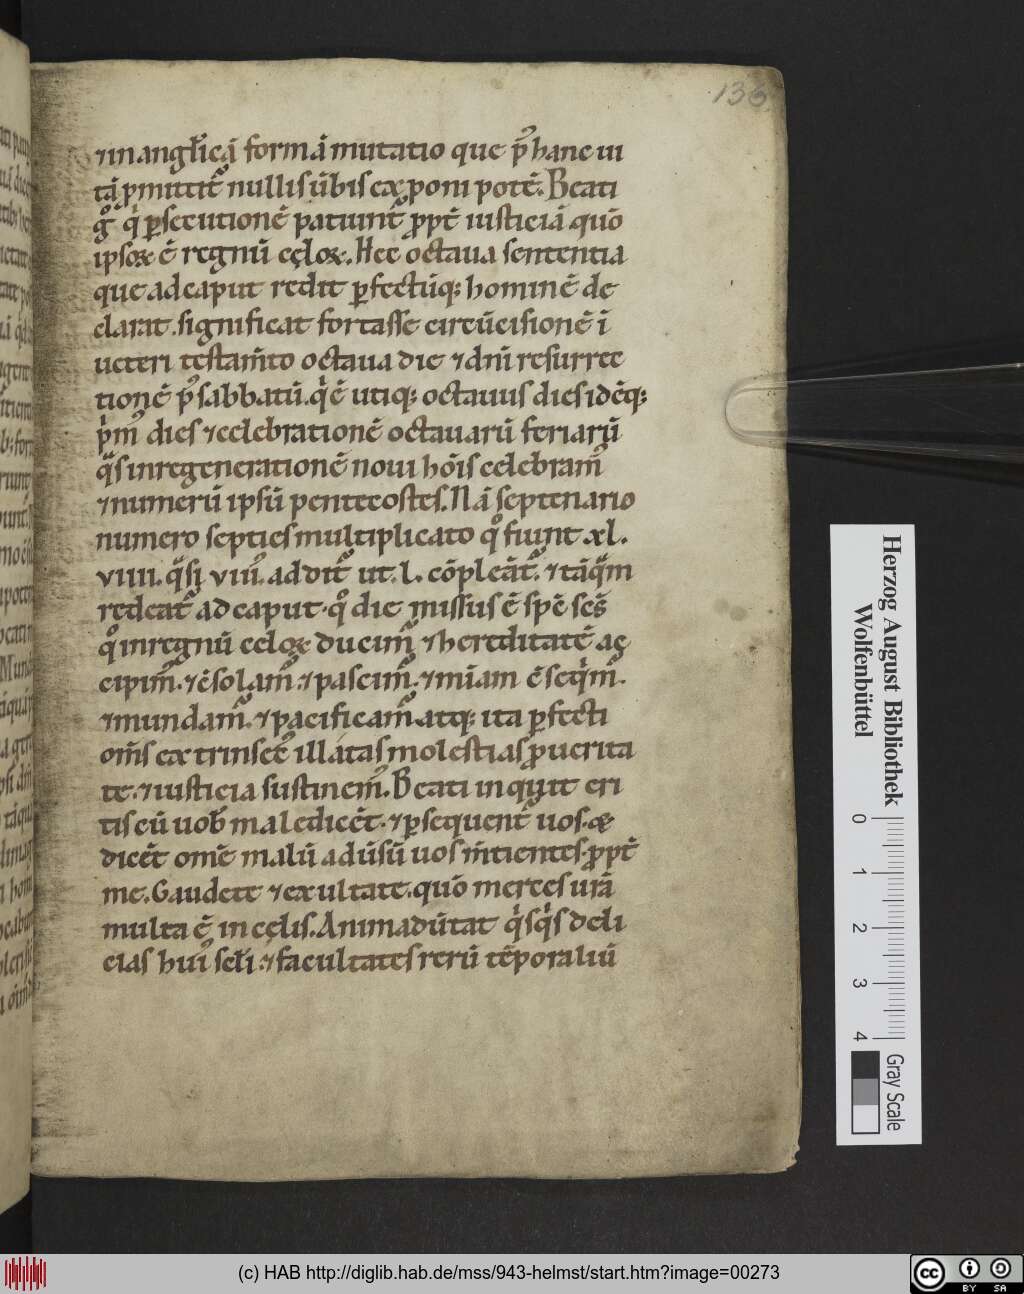 133
⁊ in anglicā formā mutatio que p᷒ hanc ui
tā ꝓmittit᷑ nullis ūbis exponi potē. Beati
gͦ qͥ ꝑsecutionē patiunt᷑ ꝓpt̄ iusticiā quō
ipsoꝝ ē regnū cęloꝝ. Hec octaua sententia
que ad caput redit ꝑfectūq; hominē de
clarat. significat fortasse circūcisionē ī
ueteri testam̄to octaua die ⁊ dn̄i resurrec
tionē p᷒ sabbatū. qͥ ē utiq; octauus dies idēq;
pͥm᷒ dies ⁊ celebrationē octauarū feriarū
qᷓs in regeneratione noui hōis celebram᷒
⁊ numerū ipsū pentecostes. Nā septenario
numero septies multiplicato qͦ fiunt .xl.
viiii. qᷓsi viii᷒. addit᷑ ut .l. cōpleāt᷑. ⁊ tāqᷓm
redeat᷑ ad caput. qͦ die missus ē sp̄c sc̄s
qͦ in regnū celoꝝ ducim᷑ ⁊ hereditatē ac
cipim᷒. ⁊ cōsolam᷑. ⁊ pascim᷑. ⁊ mīam cōseqͥm᷑.
⁊ mundam᷑. ⁊ pacificam᷑. atq; ita ꝑfecti
om̄s extrinsec᷒ illatas molestias ꝓ uerita
te. ⁊ iusticia sustinem᷒. Beati inquit eri
tis cū uob̄ maledicēt. ⁊ ꝑsequent᷑ uos. &
dicēt omē malū adūsū uos m̄tientes ꝓpt̄
me. Gaudete ⁊ exultate. quō merces urā
multa ē in cęlis. Animadūtat qͥsqͥs deli
cias hui᷒ scłi. ⁊ facultates rerū tēporaliū
Herzog August Bibliothek
Wolfenbüttel
0 1 2 3 4
Gray Scale
(c) HAB http://diglib.hab.de/mss/943-helmst/start.htm?image=00273
cc BY SA